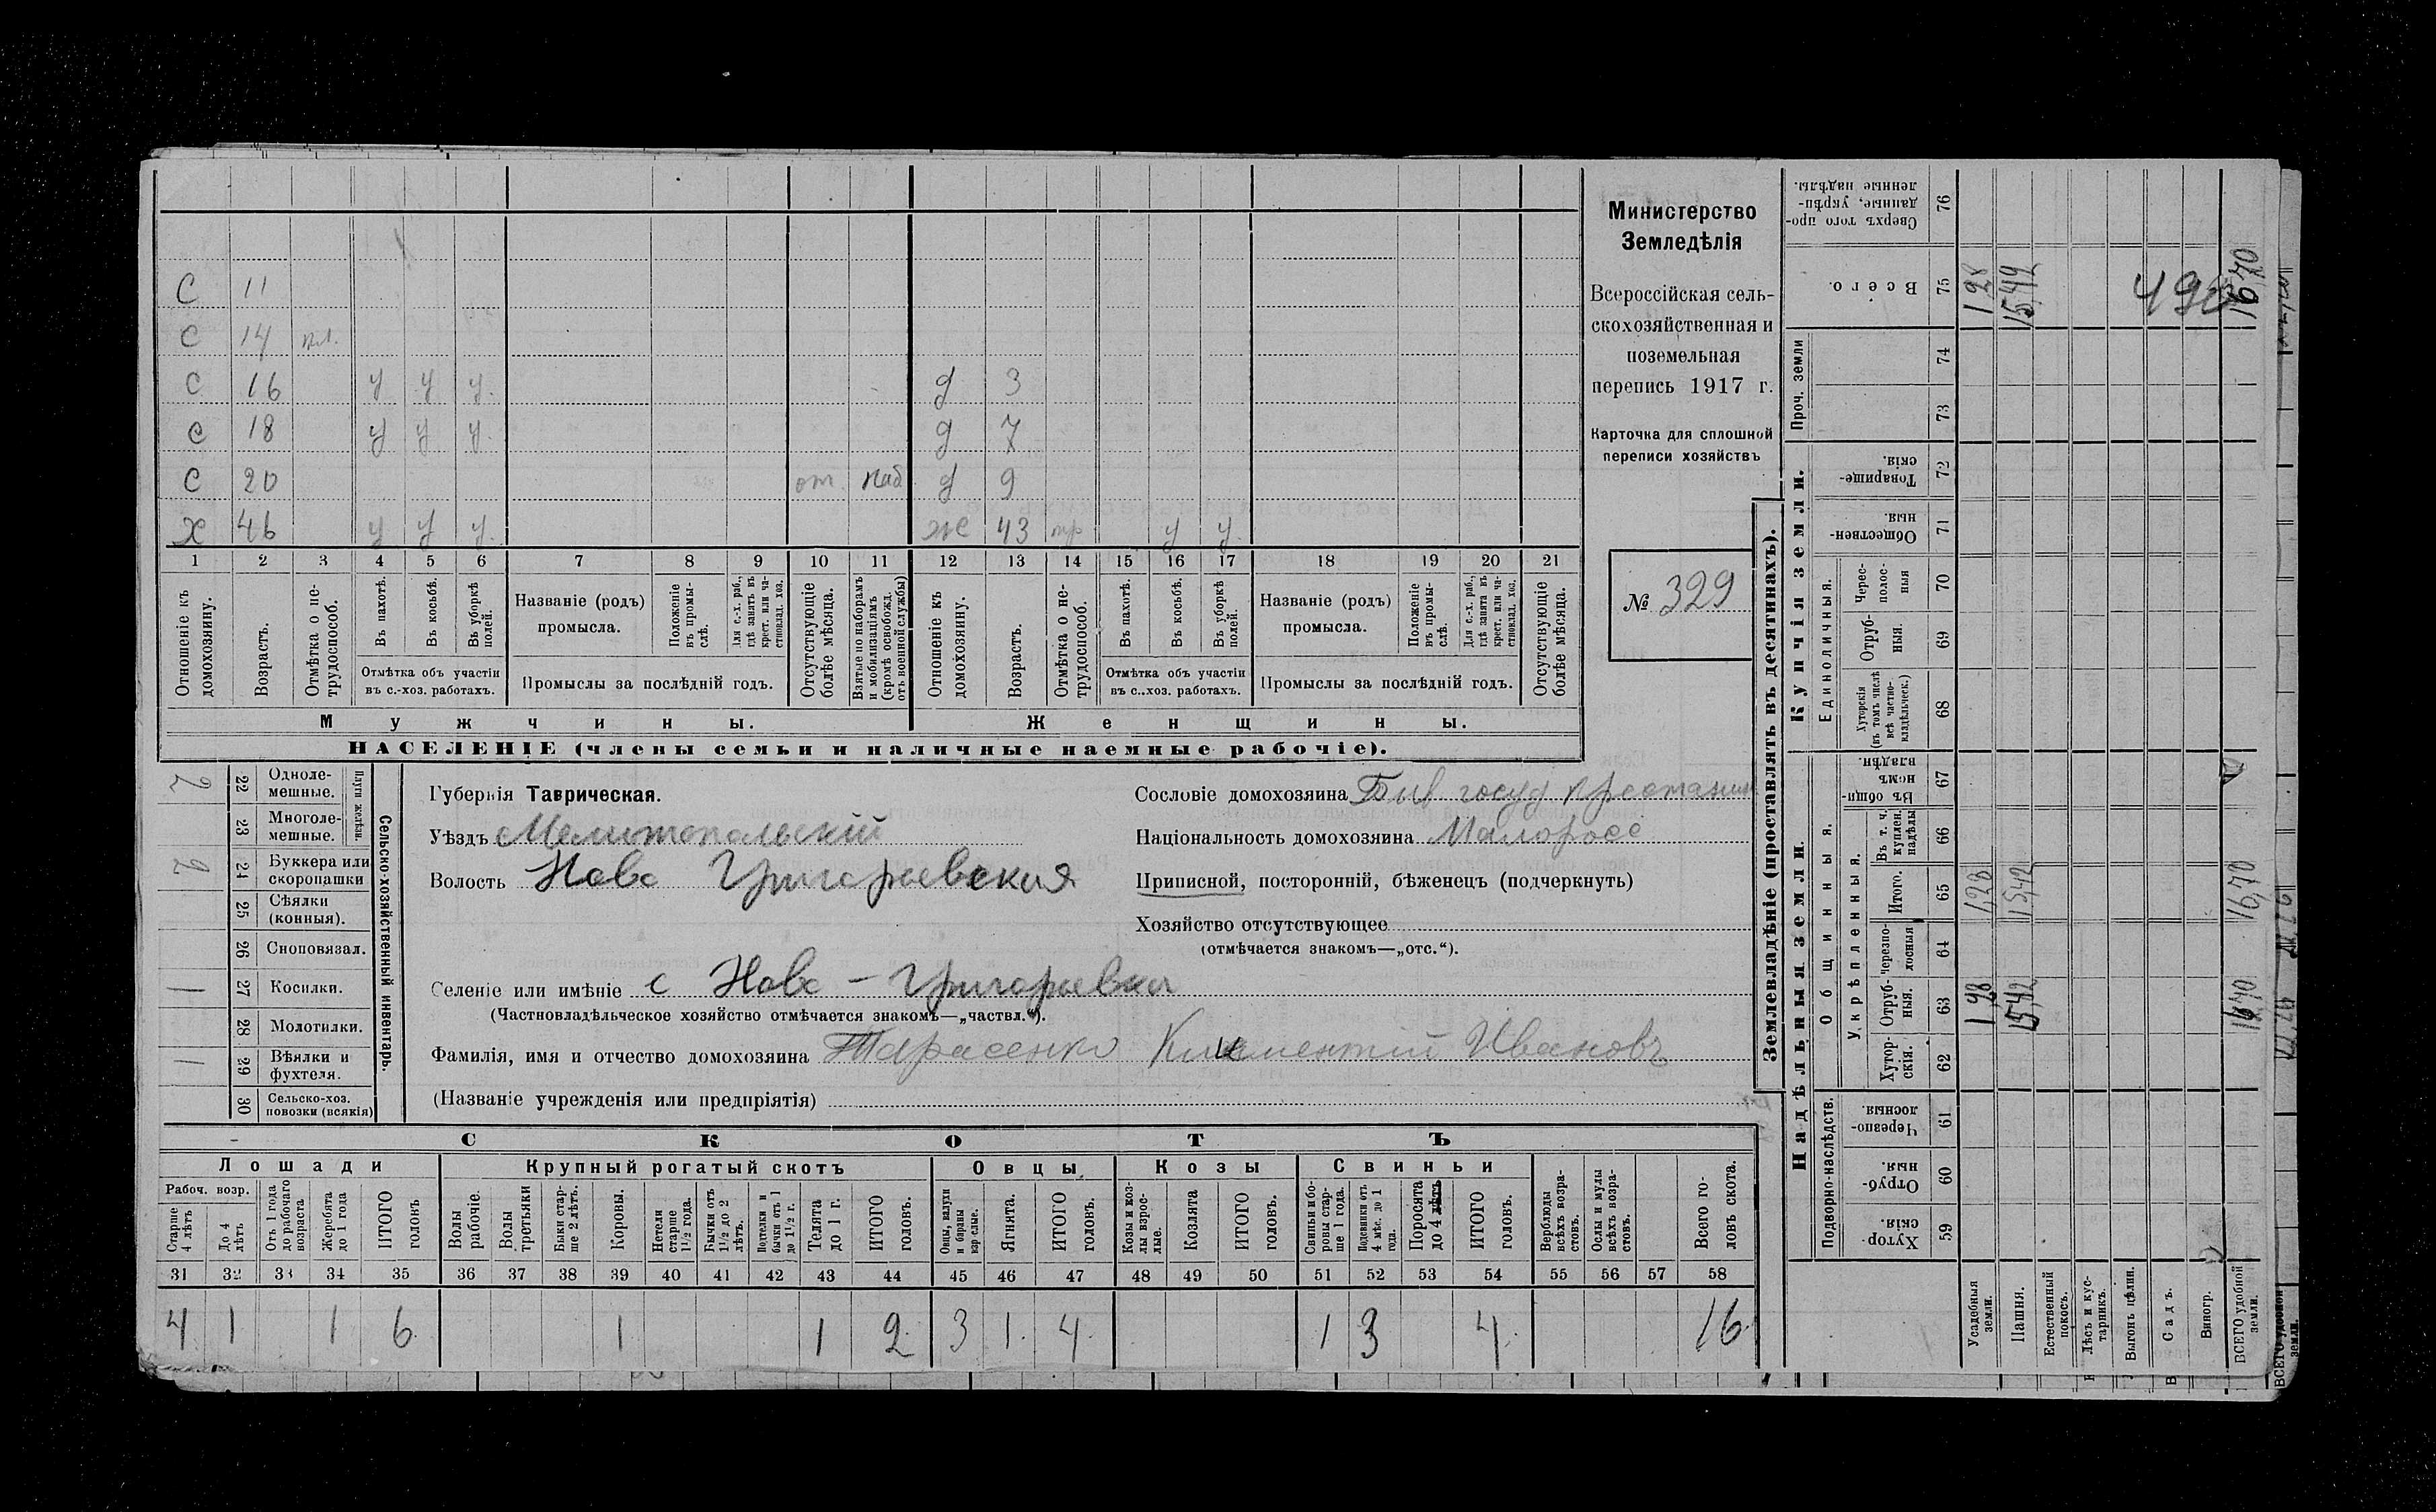 С 11
С 14 пл.
С 16 у у у. д 3
С 18 у у у. д 7
С 20 от. наб д 9
Х 46 у у у. ж 43 у у.
1 2 3 4 5 6 7 8 9 10 11 12 13 14 15 16 17 18 19 20 21
Отношеніе къ домохозяину.
Возрастъ.
Отмѣтка о не-трудоспособ.
Въ пахотѣ.
Въ косьбѣ.
Въ уборкѣ полей.
Отмѣтка объ участіи въ с.-хоз. работахъ.
Названіе (родъ) промысла.
Положеніе въ промы-слѣ.
Для с.-х. раб., гдѣ занятъ въ крест. или ча-стновлад. хоз.
Промыслы за послѣдній годъ.
Отсутствующіе болѣе мѣсяца.
Взятые по наборамъ и мобилизаціямъ (кромѣ освобожд. отъ военной службы)
Отношеніе къ домохозяину.
Возрастъ.
Отмѣтка о не-трудоспособ.
Въ пахотѣ.
Въ косьбѣ.
Въ уборкѣ полей.
Отмѣтка объ участіи въ с..хоз. работахъ.
Названіе (родъ) промысла.
Положеніе въ промы-слѣ.
Для с.-х. раб., гдѣ занята въ крест. или ча-стновлад. хоз.
Промыслы за послѣдній годъ.
Отсутствующіе болѣе мѣсяца.
Мужчины. Женщины.
НАСЕЛЕНІЕ (члены семьи и наличные наемные рабочіе).
Министерство
Земледѣлія
Всероссійская сель-
скохозяйственная и
поземельная
перепись 1917 г.
Карточка для сплошной
переписи хозяйствъ
№ 329
Сельско-хозяйственный инвентарь.
Плуги желѣзн.
2 22 Одноле-мешные.
23 Многоле-мешные.
2 24 Буккера или скоропашки
25 Сѣялки (конныя).
26 Сноповязал.
1 27 Косилки.
28 Молотилки.
1 29 Вѣялки и фухтеля.
30 Сельско-хоз. повозки (всякія)
Губернія Таврическая.
Уѣздъ Мелитопольскій
Волость Ново Григорьевская
Селеніе или имѣніе с Ново-Григорьевка
(Частновладѣльческое хозяйство отмѣчается знакомъ—„частвл.“).
Фамилія, имя и отчество домохозяина Тарасенко Климентій Ивановъ
(Названіе учрежденія или предпріятія)
Сословіе домохозяина Быв госуд крестянин
Національность домохозяина Малоросс
Приписной, посторонній, бѣженецъ (подчеркнуть)
Хозяйство отсутствующее
(отмѣчается знакомъ—„отс.“).
СКОТЪ
Лошади Крупный рогатый скотъ Овцы Козы Свиньи
Рабоч. возр.
Старше 4 лѣтъ
До 4 лѣтъ
Отъ 1 года до рабочаго возраста
Жеребята до 1 года
ИТОГО головъ
Волы рабочіе.
Волы третьяки
Быки стар-ше 2 лѣтъ.
Коровы.
Нетели старше 1½ года.
Бычки отъ 1½ до 2 лѣтъ.
Подтелки и бычки отъ 1 до 1½ г.
Телята до 1 г.
ИТОГО головъ.
Овцы, валухи и бараны взрослые.
Ягнята.
ИТОГО головъ.
Козы и коз-лы взрос-лые.
Козлята
ИТОГО головъ.
Свиньи и бо-ровы стар-ше 1 года.
Подсвинки отъ 4 мѣс. до 1 года.
Поросята до 4 лѣтъ
ИТОГО головъ.
Верблюды всѣхъ возра-стовъ.
Ослы и мулы всѣхъ возра-стовъ.
Всего го-ловъ скота.
31 32 33 34 35 36 37 38 39 40 41 42 43 44 45 46 47 48 49 50 51 52 53 54 55 56 57 58
4 1 1 6 1 1 2 3 1 4 1 3 4 16
Землевладѣніе (проставлять въ десятинахъ).
Купчія земли.
Надѣльныя земли.
Проч. земли
Единоличныя.
Общинныя.
Укрѣпленныя.
Подворно-наслѣдств.
76 Сверхъ того про-данные, укрѣп-ленные надѣлы.
75 Всего. 1,28 15,42 16,70
490
74
73
72 Товарище-скія.
71 Обществен-ныя.
70 Черес-полос-ныя
69 Отруб-ныя.
68 Хуторскія (въ томъ числѣ всѣ частно-владѣльческ.)
67 Въ общи-номъ владѣн.
66 Въ т. ч. куплен. надѣлы
65 Итого. 1,28 15,42 16,70
64 Черезпо-лосныя
63 Отруб-ныя. 1,28 15,42 16,70
62 Хутор-скія.
61 Черезпо-лосныя
60 Отруб-ныя.
59 Хутор-скія.
Усадебныя земли.
Пашня.
Естественный покосъ.
Лѣсъ и кус-тарникъ.
Выгонъ цѣлин.
Садъ.
Виногр.
ВСЕГО удобной земли.
ВСЕГО удобной земли.